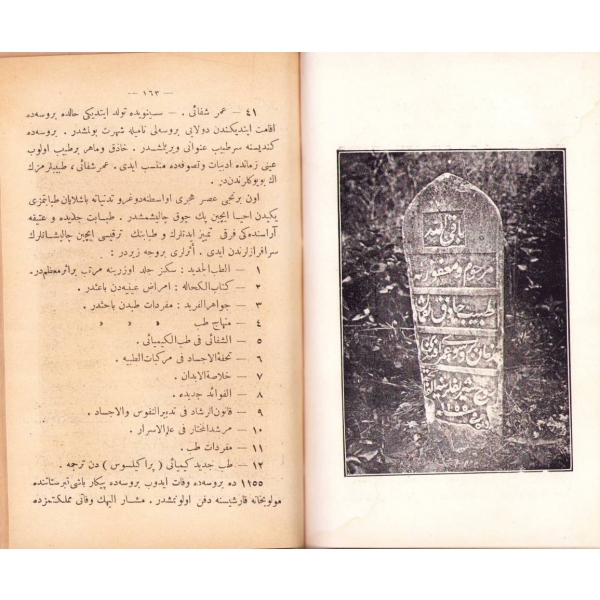 — ١٦٣ —
٤١ — عمر شفائی . — سینوبده تولد ایتدیکی حالده بروسه‌ده
اقامت ایتدیکندن دولایی بروسه‌لی نامیله شهرت بولمشدر . بروسه‌ده
کندیسنه سرطبیب عنوانی ویریلمشدر . حاذق وماهر برطبیب اولوب
عینی زمانده ادبیات وتصوفه‌ده منتسب ایدی . عمر شفائی ، طبیبلرمزك
اك بویوکلرندن در .
اون برنجی عصر هجری اواسطنه‌دوغرو تدنیاته باشلایان طبابتمزی
یکیدن احیا ایچین پك چوق چالیشمشدر . طبابت جدیده و عتیقه
آراسنده‌کی فرقی تمییز ایدنلرك و طبابتك ترقیسی ایچین چالیشانلرك
سرافرازلرندن ایدی . اثرلری بروجه زیردر :
١ — الطب الجدید : سکز جلد اوزرینه مرتب براثر معظم‌در.
٢ — کتاب الکحاله : امراض عینیه‌دن باعثدر .
٣ — جواهر الفرید : مفردات طبدن باحثدر .
٤ — منهاج طب » » »
٥ — الشفائی فی طب الکیمیائی .
٦ — تحفة الاجساد فی مرکبات الطبیه .
٧ — خلاصة الابدان .
٨ — الفوائد جدیده .
٩ — قانون الرشاد فی تدبیر النفوس والاجساد .
١٠ — مرشد المختار فی علم الاسرار .
١١ — مفردات طب .
١٢ — طب جدید کیمیائی ( پراکلسوس ) دن ترجمه .
١١٥٥ ده بروسه‌ده وفات ایدوب بروسه‌ده پیکار باشی قبرستاننده
مولویخانه قارشیسنه دفن اولونمشدر . مشار الیهك وفاتی مملکتمزده
باقی الله
مرحوم و مغفور
طبیب حاذق
١١٥٥